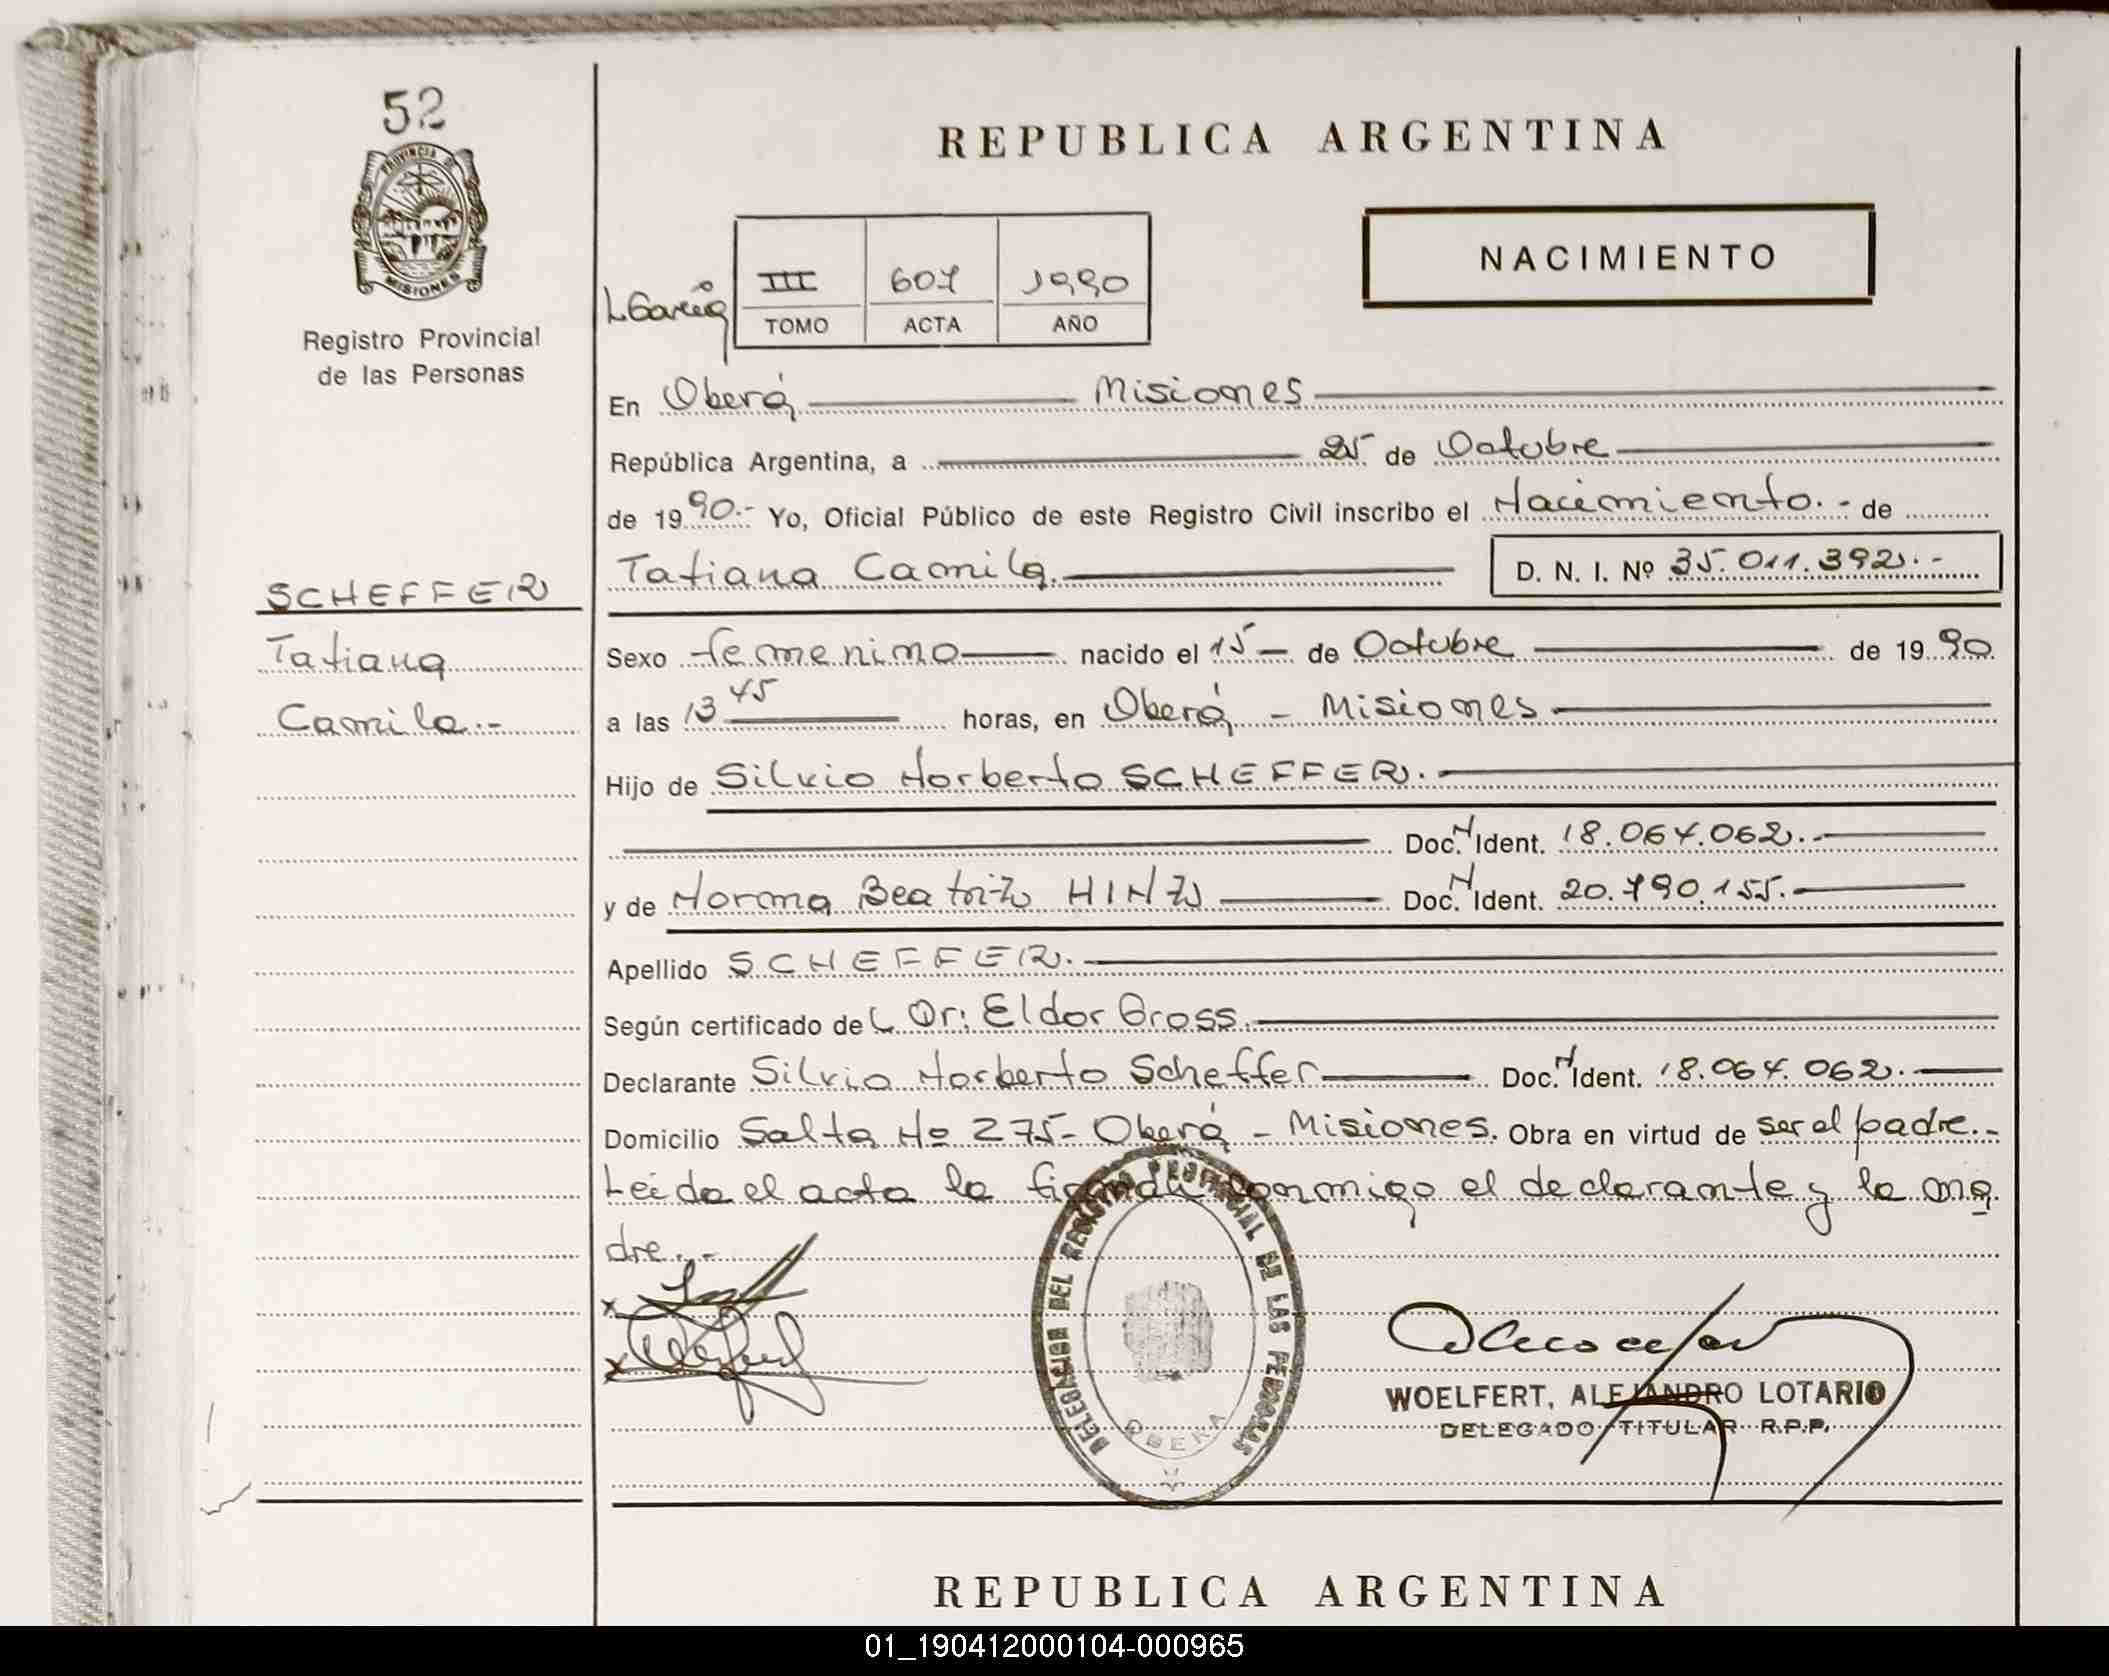 52
PROVINCIA DE
MISIONES
Registro Provincial
de las Personas
SCHEFFER
Tatiana
Camila.-
REPUBLICA ARGENTINA
NACIMIENTO
L. García
III 607 1990
TOMO ACTA AÑO
En Oberá Misiones
República Argentina, a 25 de Octubre
de 1990.- Yo, Oficial Público de este Registro Civil inscribo el Nacimiento.- de
Tatiana Camila. D. N. I. Nº 35.011.392.-
Sexo femenino nacido el 15 de Octubre de 1990
a las 13 45 horas, en Oberá - Misiones
Hijo de Silvio Norberto SCHEFFER.
Doc. N Ident. 18.064.062.
y de Norma Beatriz HINZ Doc. N Ident. 20.790.155.
Apellido SCHEFFER.
Según certificado del Dr: Eldor Gross.
Declarante Silvio Norberto Scheffer Doc. N Ident. 18.064.062.
Domicilio Salta Nº 275- Oberá - Misiones. Obra en virtud de ser el padre.-
Leída el acta la firman conmigo el declarante y la ma
dre.-
DELEGACION DEL REGISTRO PROVINCIAL DE LAS PERSONAS
OBERA
WOELFERT, ALEJANDRO LOTARIO
DELEGADO TITULAR R.P.P.
REPUBLICA ARGENTINA
01_190412000104-000965